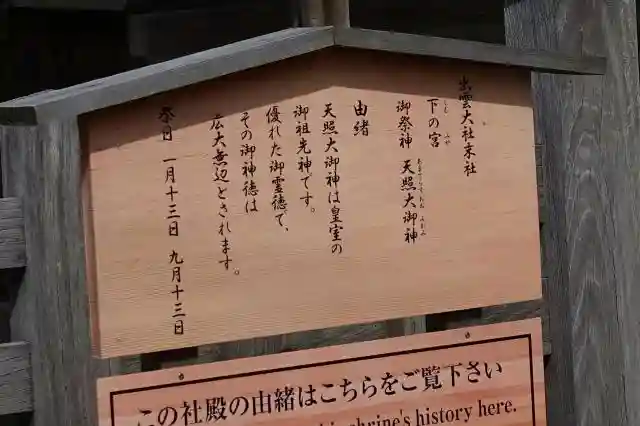 出雲大社末社
下の宮
しも みや
御祭神 天照大御神
あまてらすおおみかみ
由緒
天照大御神は皇室の
御祖先神です。
優れた御霊徳で、
その御神徳は
広大無辺とされます。
祭日 一月十三日 九月十三日
この社殿の由緒はこちらをご覧下さい
shrine's history here.